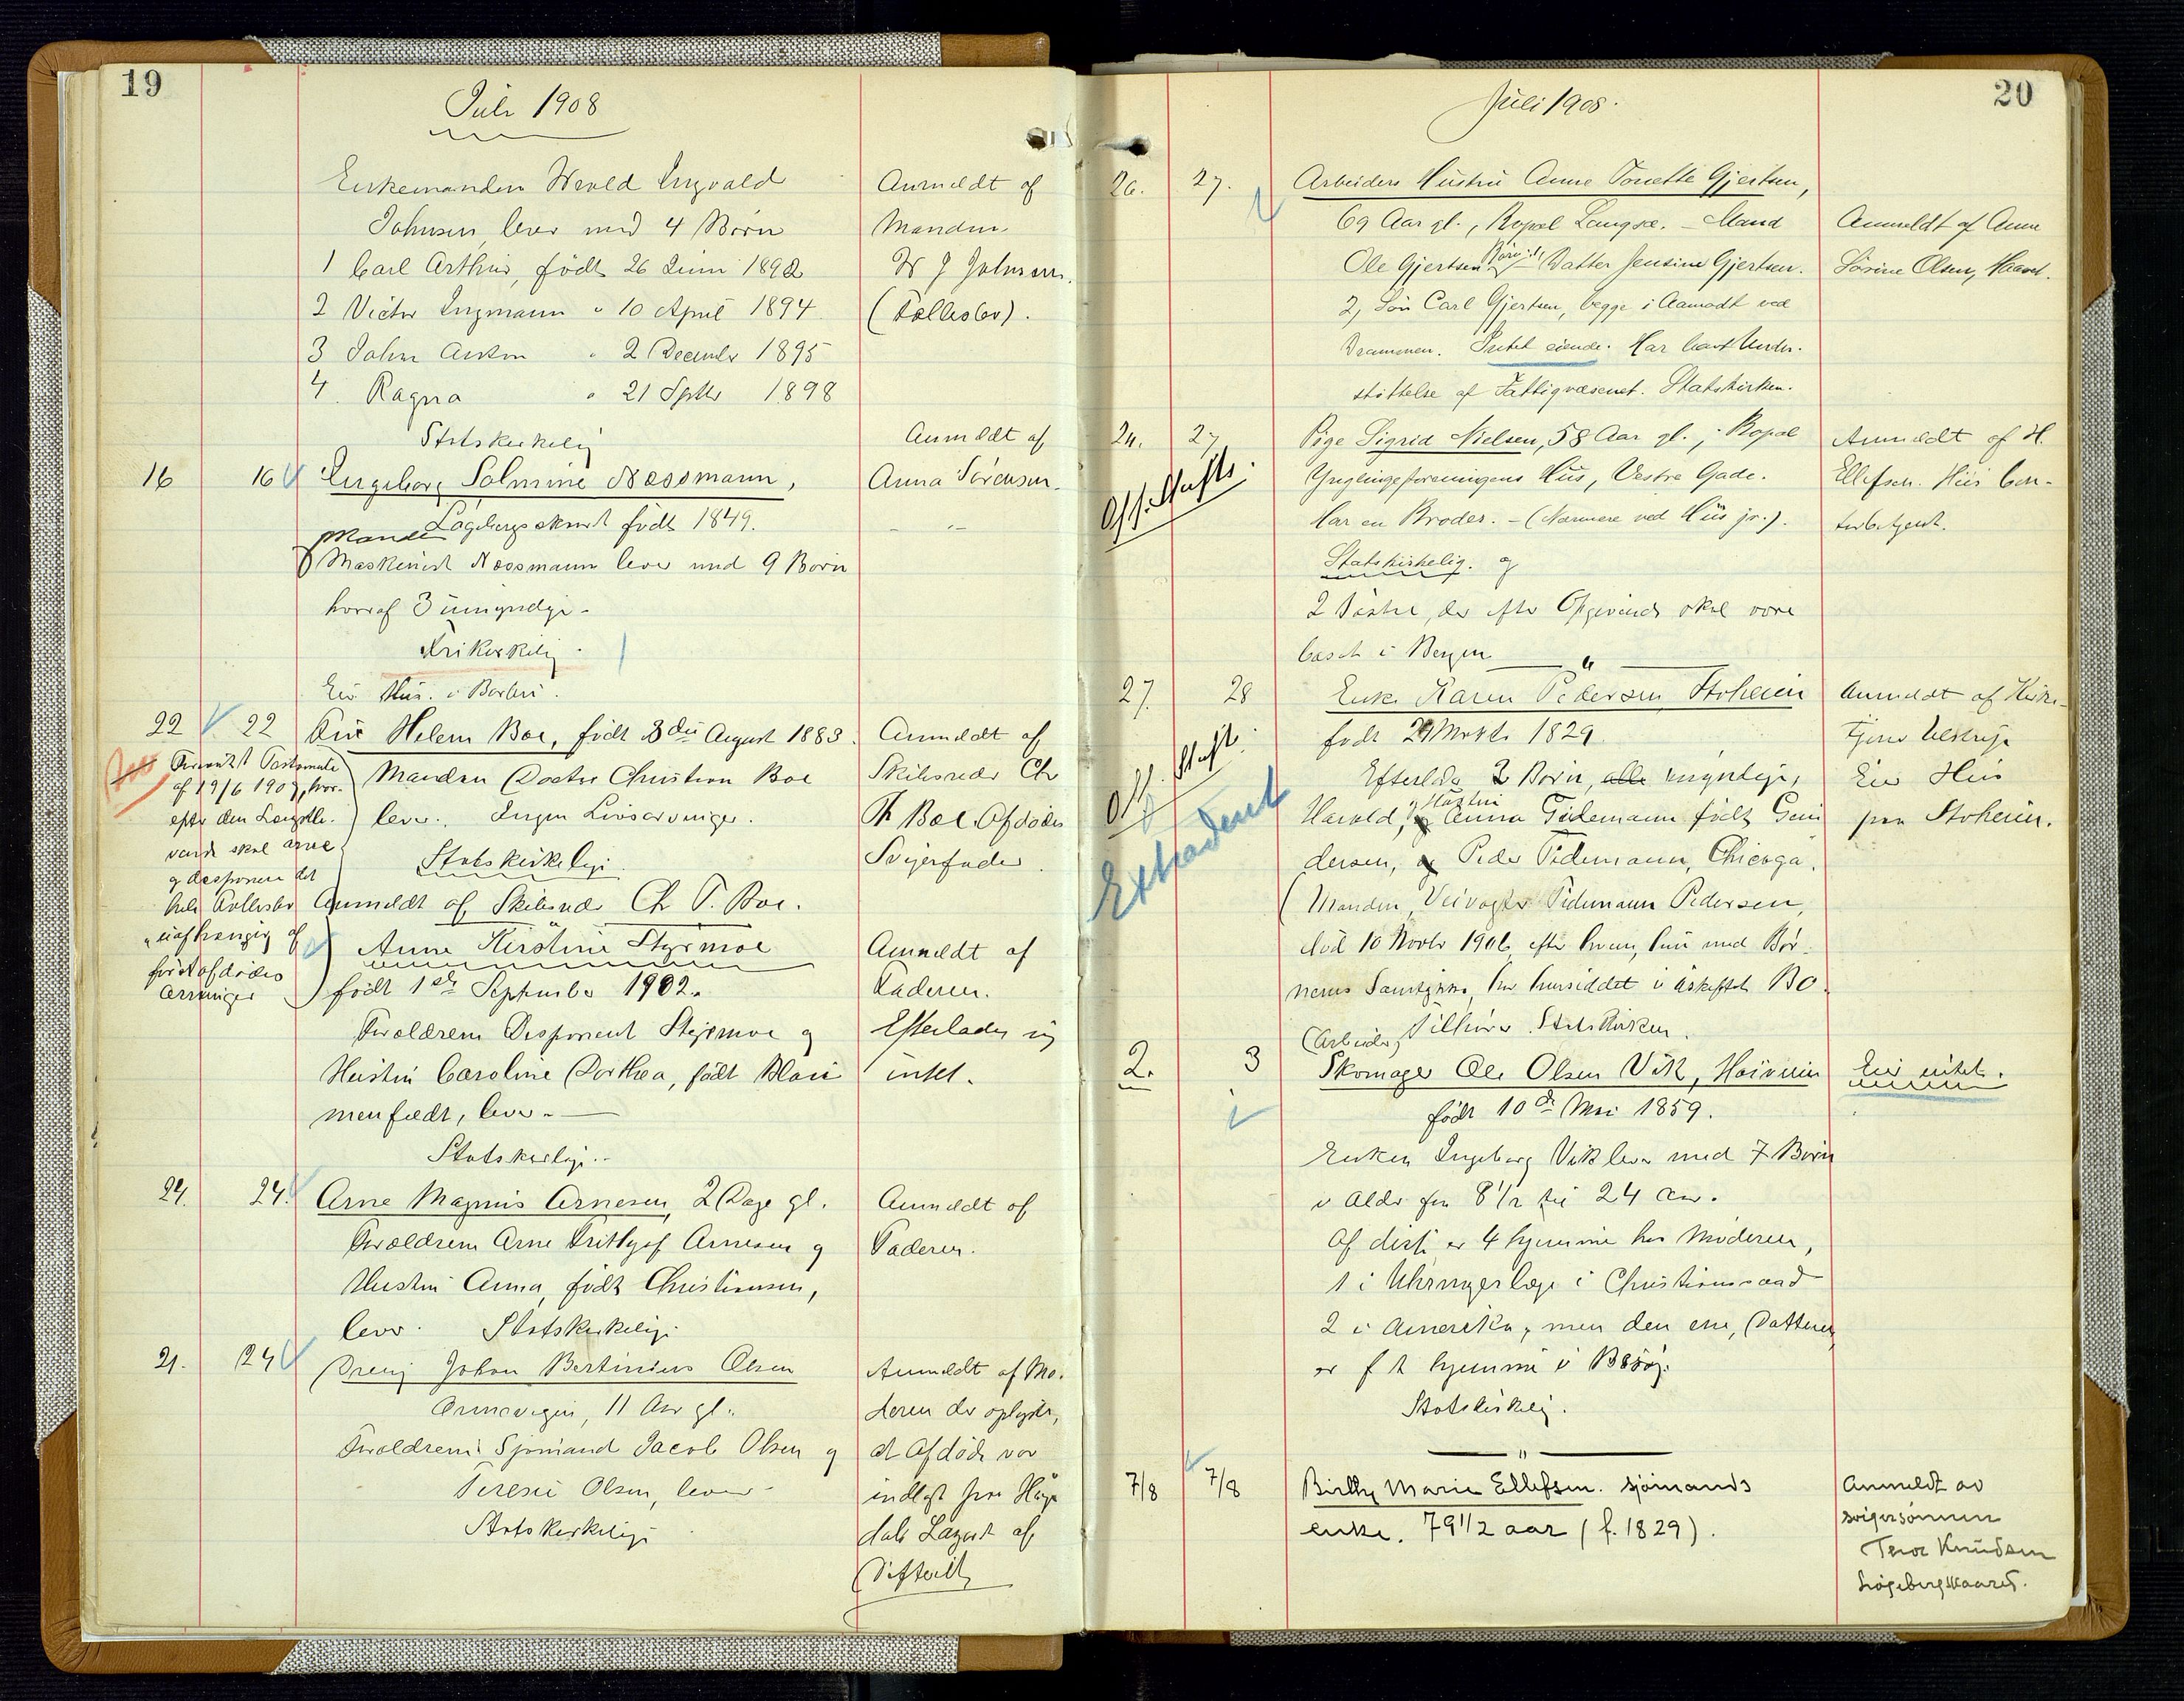 19
Juli 1908
Enkemanden Wrold Ingvald
Johnsen, lever med 4 Børn
1 Carl Arthur, født 26 Juni 1892
2 Victor Ingmann " 10 April 1894
3 John Anton " 2 December 1895
4. Ragna " 21 Septbr 1898
Statskirkelig
Anmeldt af
Manden
W J Johnsen.
(Fællesbo).
16 16 Ingeborg Solmine Nossmann,
Løgebergskaaret født 1849.
Manden
Maskinist Nossmann lever med 9 Børn
hvoraf 3 umyndige.
Frikirkelig.
Eier Hus i Barbu.
Anmeldt af
Anna Sørensen.
22 22 Frue Helen Boe, født 3die August 1883.
Manden Doctor Christian Boe
lever. Ingen Livsarvinger.
Statskirkelig.
Anmeldt af Skibsreder Ch T. Boe.
Anmeldt af
Skibsreder Chr
Th Boe. Afdødes
Svigerfader
Testamente
af 19/6 1907, hvor-
efter den Længstle-
vende skal arve
og disponere det
hele Fællesbo
uafhængig af
førstafdødes
Arvinger
Anne Kirstine Styrmoe
født 1ste September 1902.
Forældrene Disponent Styrmoe og
Hustru Caroline Dorthea, født Blau
menfeldt, lever.
Statskirkelig.
Anmeldt af
Faderen.
Efterlader sig
intet.
24. 24. Arne Magnus Arnesen, 2 Dage gl.
Forældrene Arne Frithjof Arnesen og
Hustru Anna, født Christiansen,
lever. Statskirkelig.
Anmeldt af
Faderen.
21. 24 Dreng Johan Bertinius Olsen
11 Aar gl.
Forældrene Sjømand Jacob Olsen og
Terese Olsen, lever.
Statskirkelig
Anmeldt af Mo-
deren der oplyste,
at Afdøde var
indlagt paa Høge
dals Lazaret af
Difterit
20
Juli 1908.
26. 27. Arbeiders Hustru Anne Tonette Gjertsen,
69 Aar gl., Bopæl Langsæ. – Mand
Ole Gjertsen. Børn: 1, Datter Jensine Gjertsen.
2, Søn Carl Gjertsen, begge i Aamodt ved
Drammen. Intet eiende. Har havt Under-
støttelse af Fattigvæsenet. Statskirken.
Anmeldt af Anne
Sørine Olsen,
24. 27 Pige Sigrid Nielsen, 58 Aar gl., Bopæl
Ynglingeforeningens Hus, Vestre Gade.
Har en Broder. – (Nærmere ved Hiis jr.).
Statskirkelig. og
2 Søstre, der efter Opgivende skal være
bosat i Bergen
Off. Skifte.
Anmeldt af H.
Ellefsen. Hiis Con-
torbetjent.
27. 28 Enke Karen Pedersen, Stoheien
født 29 1829.
Efterlader 2 Børn, alle myndige,
Harald, og Hustru Anna Tidemann født Gun
dersen, og Peder Tidemann, Chicago.
(Manden, Veivogter Tidemann Pedersen,
død 10 Novbr 1906, efter hvem hun med Bør-
nenes Samtykke, har hensiddet i uskiftet Bo.
Tilhører Statskirken.
Off. Skift.
Extraderet
Anmeldt af Kirke-
tjener
Eier Hus
paa Stoheien.
2. 3 (Arbeider)
Skomager Ole Olsen Vik,
født 10de Mai 1859.
Enken Ingeborg Vik lever med 7 Børn
i Alder fra 8 1/2 til 24 Aar.
Af disse er 4 hjemme hos Moderen,
1 i Uhrmagerlære i Christianssand
2 i Amerika, men den ene, Datteren,
er f t hjemme i Besøg.
Statskirkelig.
Eier intet.
7/8 7/8 Birthe Marie Ellefsen. sjømands
enke. 79 1/2 aar (f. 1829).
Anmeldt av
svigersønnen
Knudsen
Løgebergskaaret.